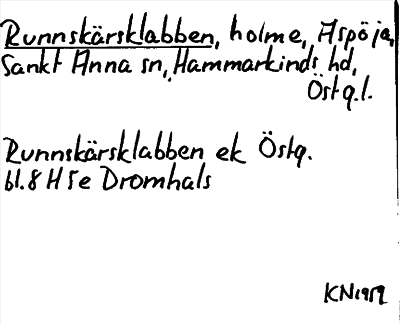 Runnskärsklabben, holme, Aspöja,
Sankt Anna sn, Hammarkinds hd,
Östg.l.
Runnskärsklabben ek Östg.
bl. 8 H 5e Dromhals
KN 1959